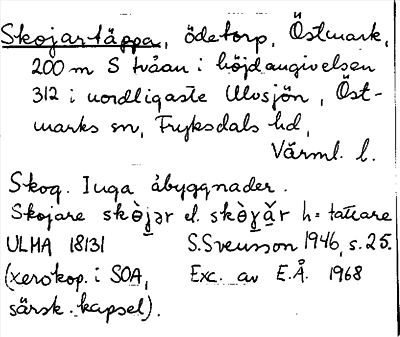 Skojartäppa, ödetorp, Östmark,
200 m S tvåan i höjdangivelsen
312 i nordligaste Ulvsjön, Öst-
marks sn, Fryksdals hd,
Värml. l.
Skog. Inga åbyggnader.
Skojare skòjər el. skòɣǎr h = tattare
ULMA 18131 S. Svensson 1946, s. 25.
(xerokop. i SOA, Exc. av E.Å. 1968
särsk. kapsel).